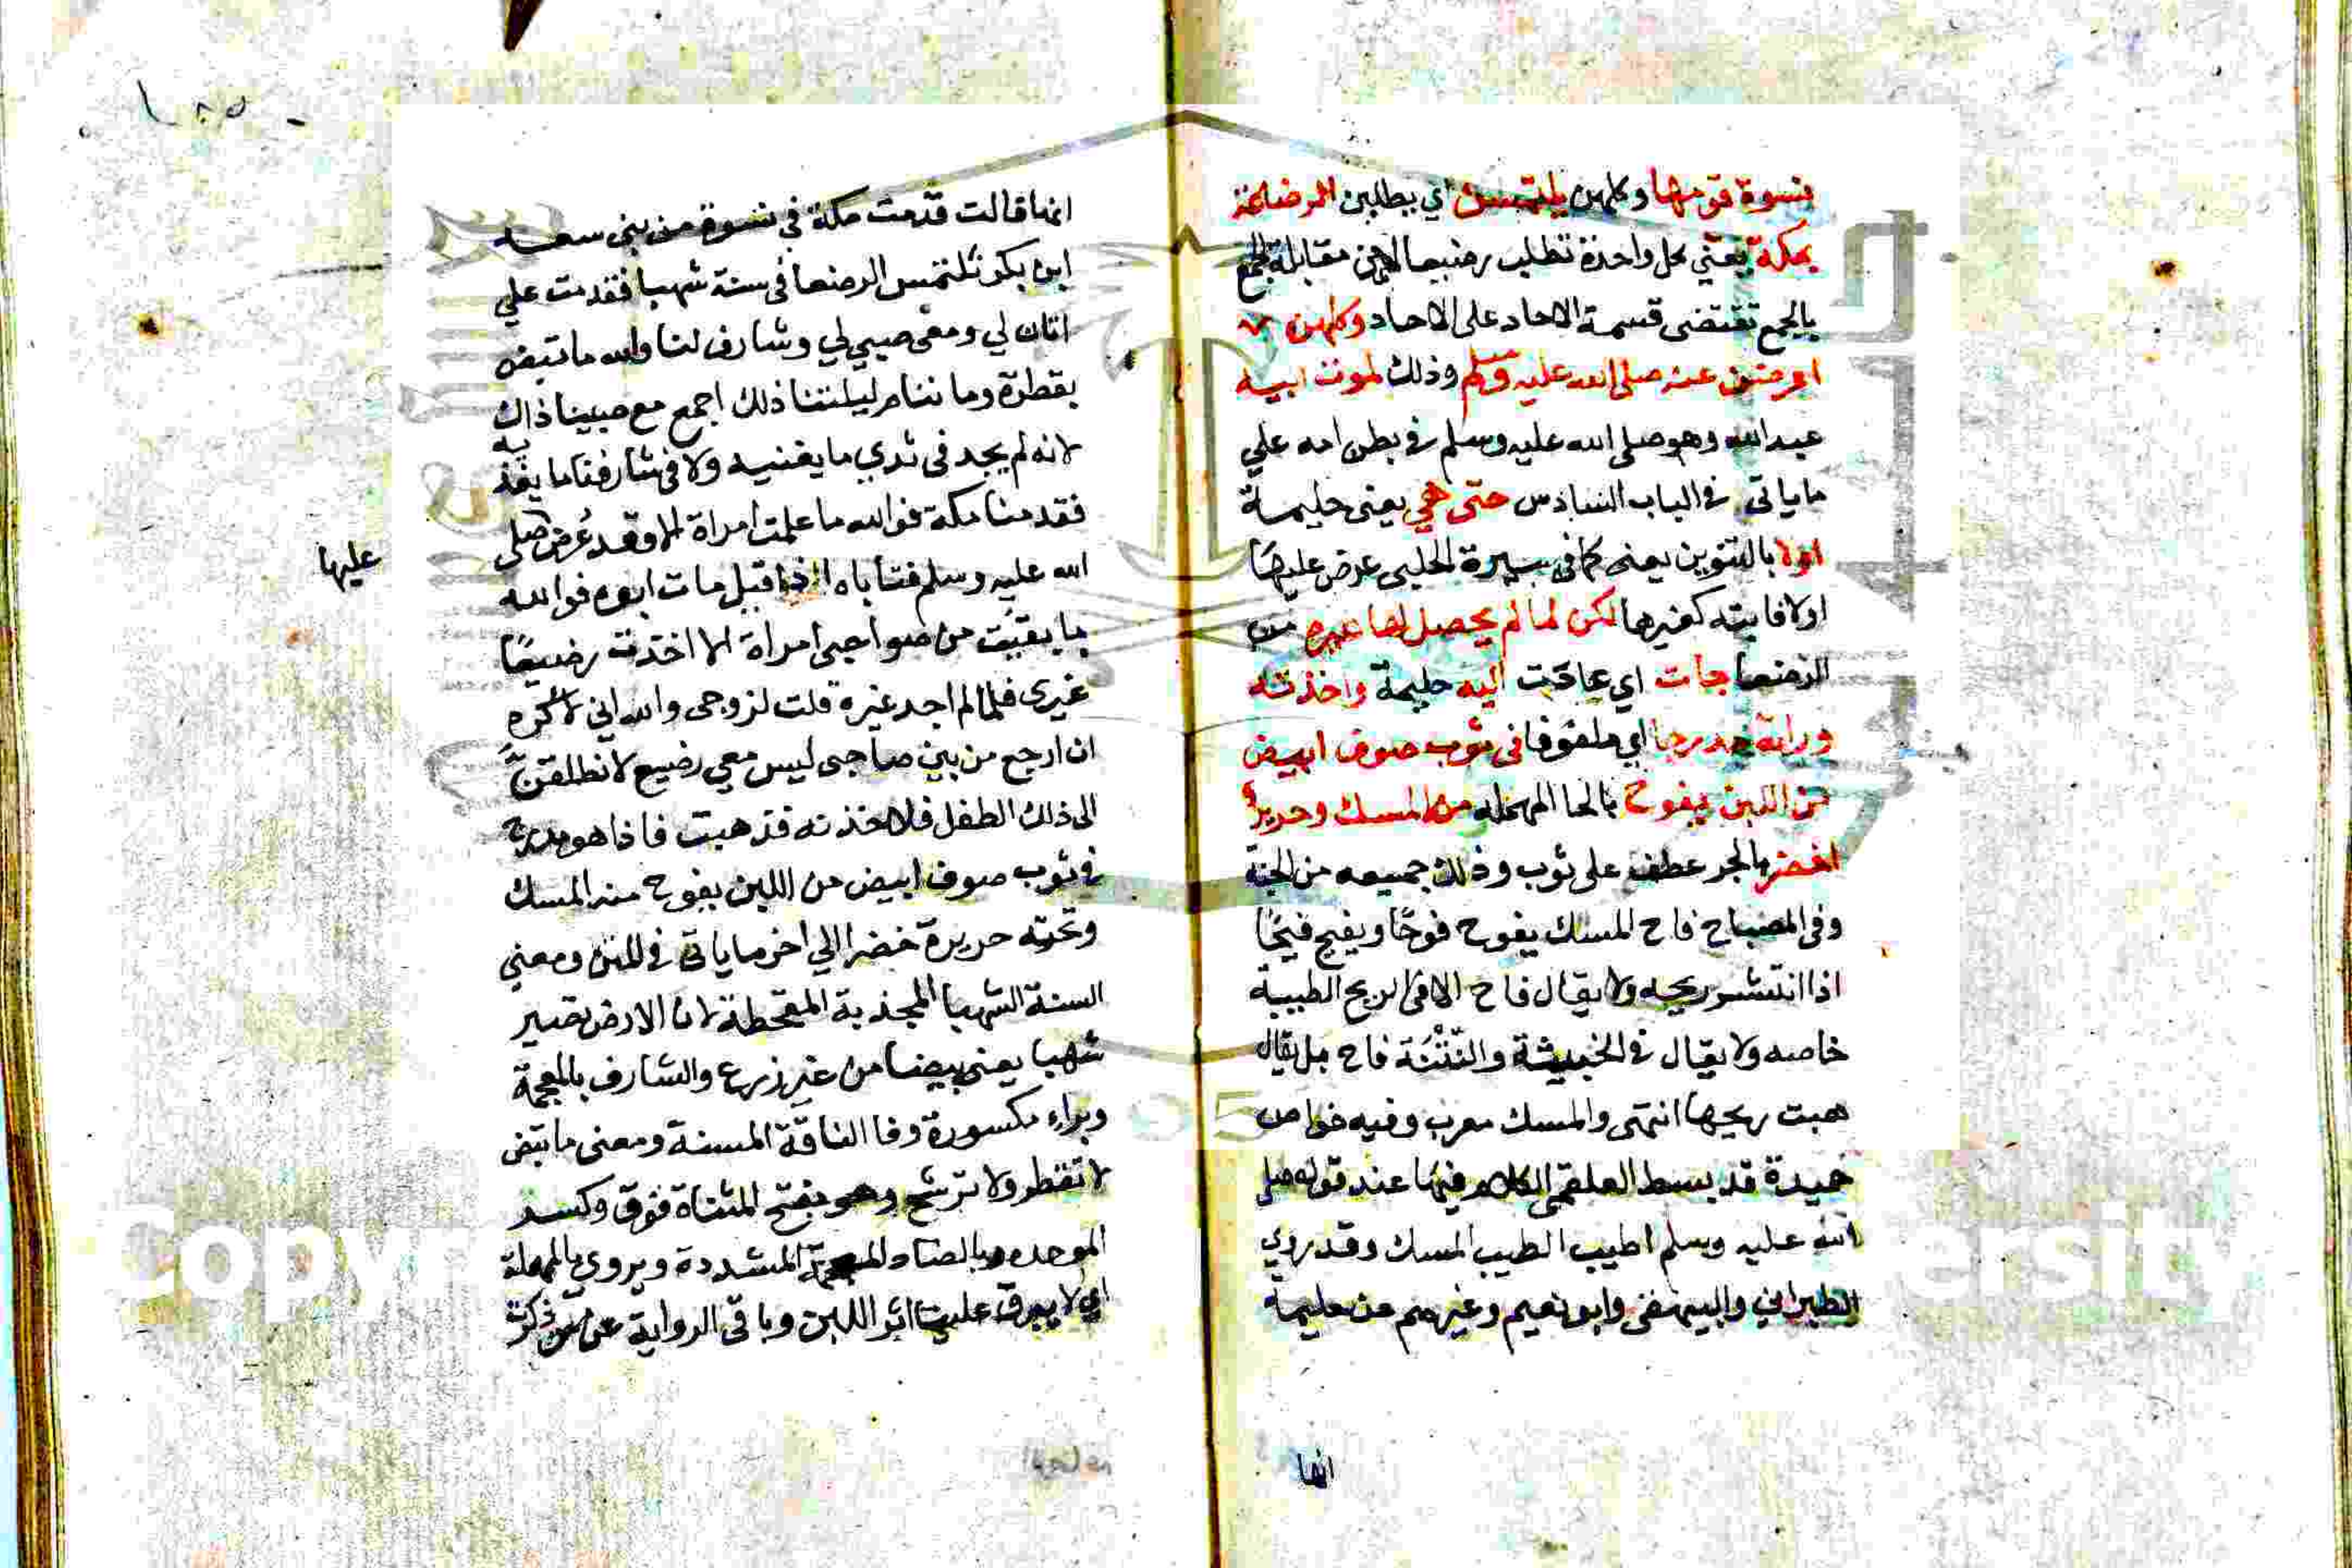 نسوة قومها وكلهن يلتمسن اي يطلبن الرضاعة
بمكة يعني كل واحدة تطلب رضيعا لان مقابلة الجمع
بالجمع تقتضى قسمة الاحاد على الاحاد وكلهن
اعرضن عنه صلى الله عليه وسلم وذلك لموت ابيه
عبد الله وهو صلى الله عليه وسلم في بطن امه علي
ماياتى في الباب السادس حتى هي يعنى حليمة
اولا بالتنوين يعنى كما في سيرة الحلبى عرض عليها
اولا فابته كغيرها لكن لما لم يحصل لها غيره من
الرضعا جات اي عادت اليه حليمة واخذته
وراته مدرجا اي ملفوفا في ثوب صوف ابيض
من اللبن يفوح بالحا المهملة منه المسك وحرير
اخضر بالجر عطف على ثوب وذلك جميعه من الجنة
وفى المصباح فاح المسك يفوح فوحًا ويفيح فيحًا
اذا انتشر ريحه ولا يقال فاح الا في الريح الطيبة
خاصه ولا يقال في الخبيثة والنتنة فاح بل يقال
هبت ريحها انتهى والمسك معرب وفيه خواص
حميدة قد بسط العلقمى الكلام فيها عند قوله صلى
الله عليه وسلم اطيب الطيب المسك وقد روي
الطبراني والبيهقى وابو نعيم وغيرهم عن حليمة
انها
انها قالت قدمت مكة في نسوة من بنى سعد
ابن بكر نلتمس الرضعا في سنة شهبا فقدمت علي
اتان لي ومعى صبي لي وشارف لنا والله ما تبض
بقطرة وما ننام ليلتنا ذلك اجمع مع صبينا ذاك
لانه لم يجد في ثدي ما يغنيه ولا في شارفنا ما يغذيه
فقدمنا مكة فوالله ما علمت امراة الا وقد عُرض صلى
عليها
الله عليه وسلم فتاباه اذا قيل مات ابوه فوالله
ما بقيت من صواحبى امراة الا اخذت رضيعًا
غيرى فلما لم اجد غيره قلت لزوجى والله اني لاكره
ان ارجع من بين صواحبى ليس معي رضيع لانطلقنَّ
الى ذلك الطفل فلاخذنه فذهبت فاذا هو مدرج
في ثوب صوف ابيض من اللبن يفوح منه المسك
وتحته حريرة خضرا الي اخر ما ياتى في المتن ومعني
السنة الشهبا المجدبة المقحطة لان الارض تصير
شهبا يعنى بيضا من غير زرع والشارف بالمعجمة
وبراء مكسورة وفا الناقة المسنة ومعنى ما تبض
لا تقطر ولا ترشح وهو بفتح المثناة فوق وكسر
الموحده وبالضاد المعجمة المشددة ويروي بالمهملة
اي لا يبرق عليها اثر اللبن وباقى الرواية عن من ذكرت